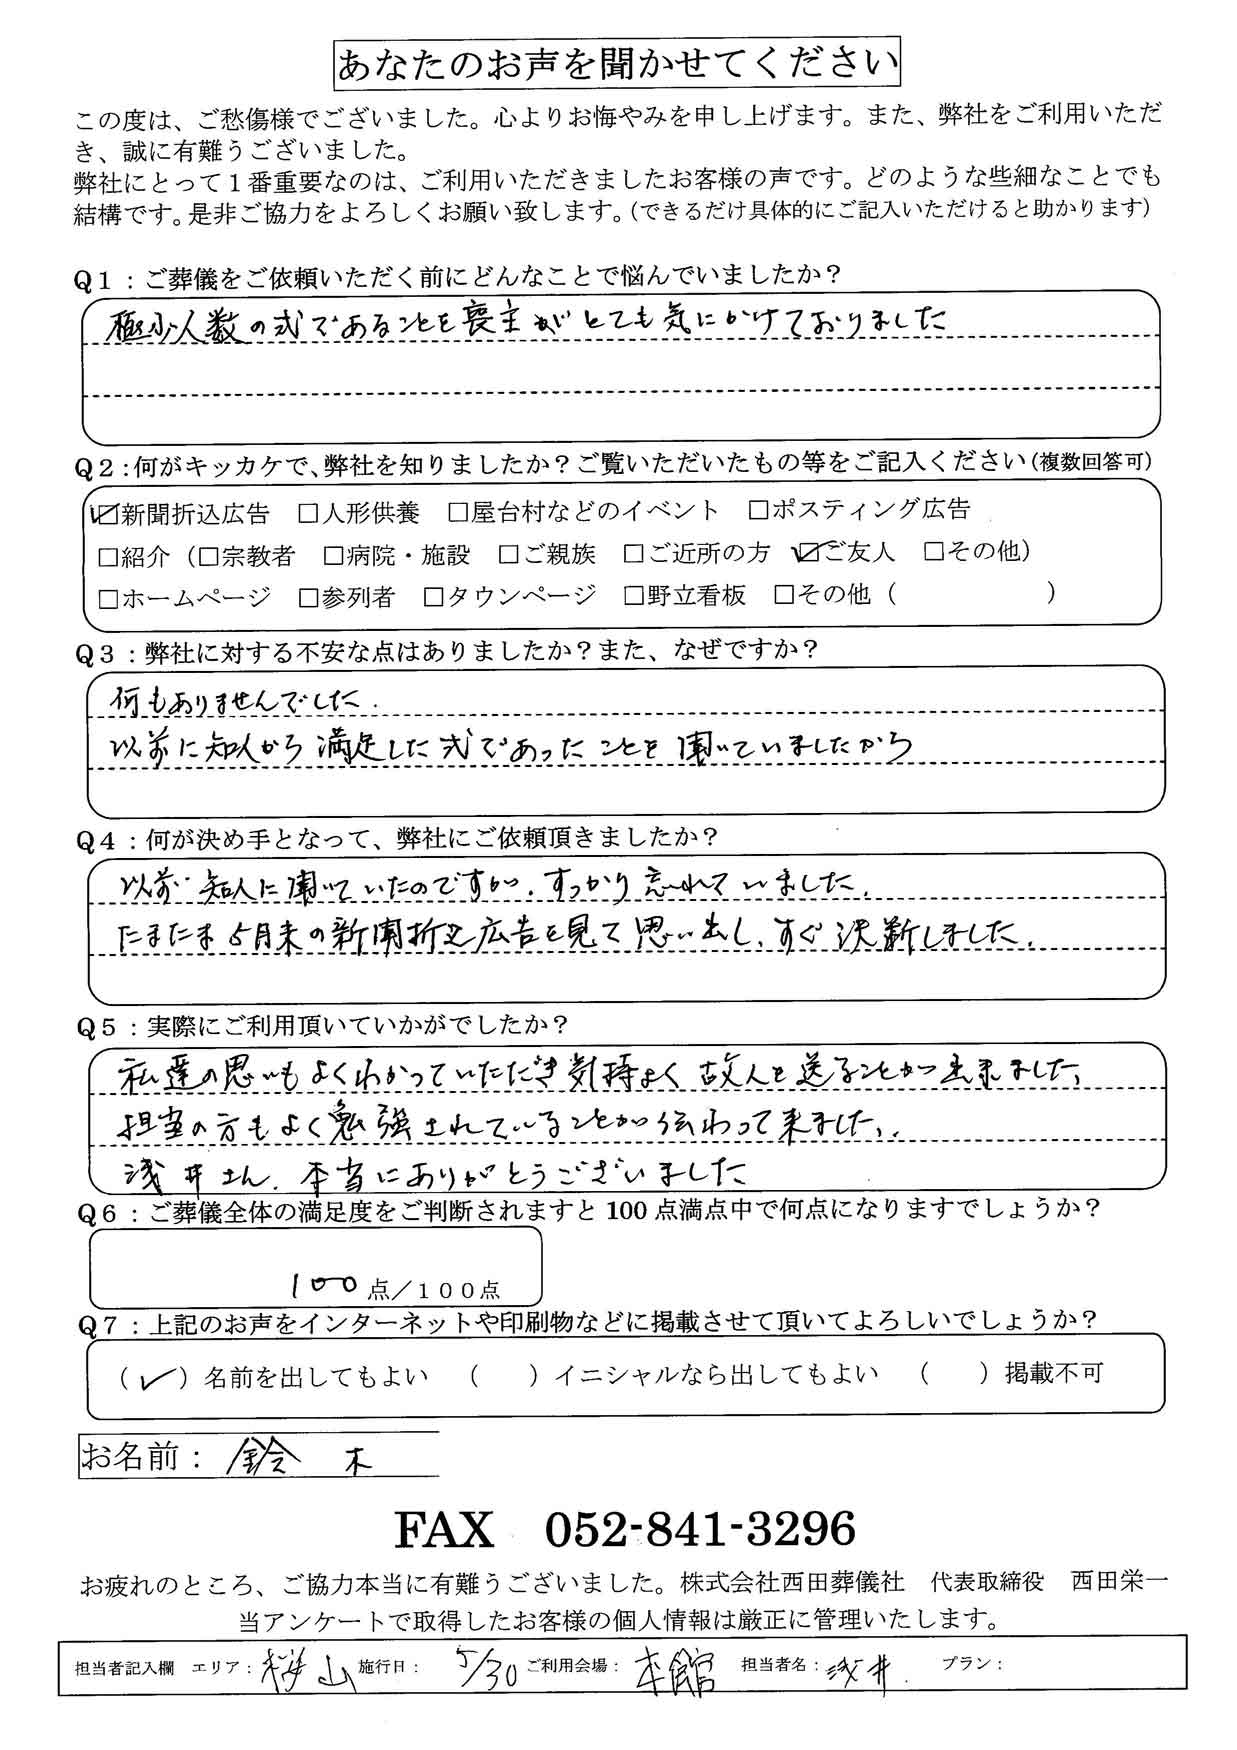 あなたのお声を聞かせてください
この度は、ご愁傷様でございました。心よりお悔やみを申し上げます。また、弊社をご利用いただ
き、誠に有難うございました。
弊社にとって１番重要なのは、ご利用いただきましたお客様の声です。どのような些細なことでも
結構です。是非ご協力をよろしくお願い致します。（できるだけ具体的にご記入いただけると助かります）
Q１：ご葬儀をご依頼いただく前にどんなことで悩んでいましたか？
極小人数の式であることを喪主がとても気にかけておりました
Q２：何がキッカケで、弊社を知りましたか？ご覧いただいたもの等をご記入ください（複数回答可）
☑新聞折込広告　□人形供養　□屋台村などのイベント　□ポスティング広告
□紹介（□宗教者　□病院・施設　□ご親族　□ご近所の方　☑ご友人　□その他）
□ホームページ　□参列者　□タウンページ　□野立看板　□その他（　　　　　　）
Q３：弊社に対する不安な点はありましたか？また、なぜですか？
何もありませんでした.
以前に知人から満足した式であったことを聞いていましたから
Q４：何が決め手となって、弊社にご依頼頂きましたか？
以前知人に聞いていたのですが、すっかり忘れていました。
たまたま5月末の新聞折込広告を見て思い出し、すぐ決断しました。
Q５：実際にご利用頂いていかがでしたか？
私達の思いもよくわかっていただき気持よく故人を送ることが出来ました。
担当の方もよく勉強されていることが伝わって来ました。
浅井さん、本当にありがとうございました
Q６：ご葬儀全体の満足度をご判断されますと 100 点満点中で何点になりますでしょうか？
100 点／１００点
Q７：上記のお声をインターネットや印刷物などに掲載させて頂いてよろしいでしょうか？
（✓）名前を出してもよい　（　）イニシャルなら出してもよい　（　）掲載不可
お名前： 鈴木
FAX 052-841-3296
お疲れのところ、ご協力本当に有難うございました。株式会社西田葬儀社　代表取締役　西田栄一
当アンケートで取得したお客様の個人情報は厳正に管理いたします。
担当者記入欄　エリア：桜山 施行日： 5/30 ご利用会場： 本館 担当者名：浅井. プラン：